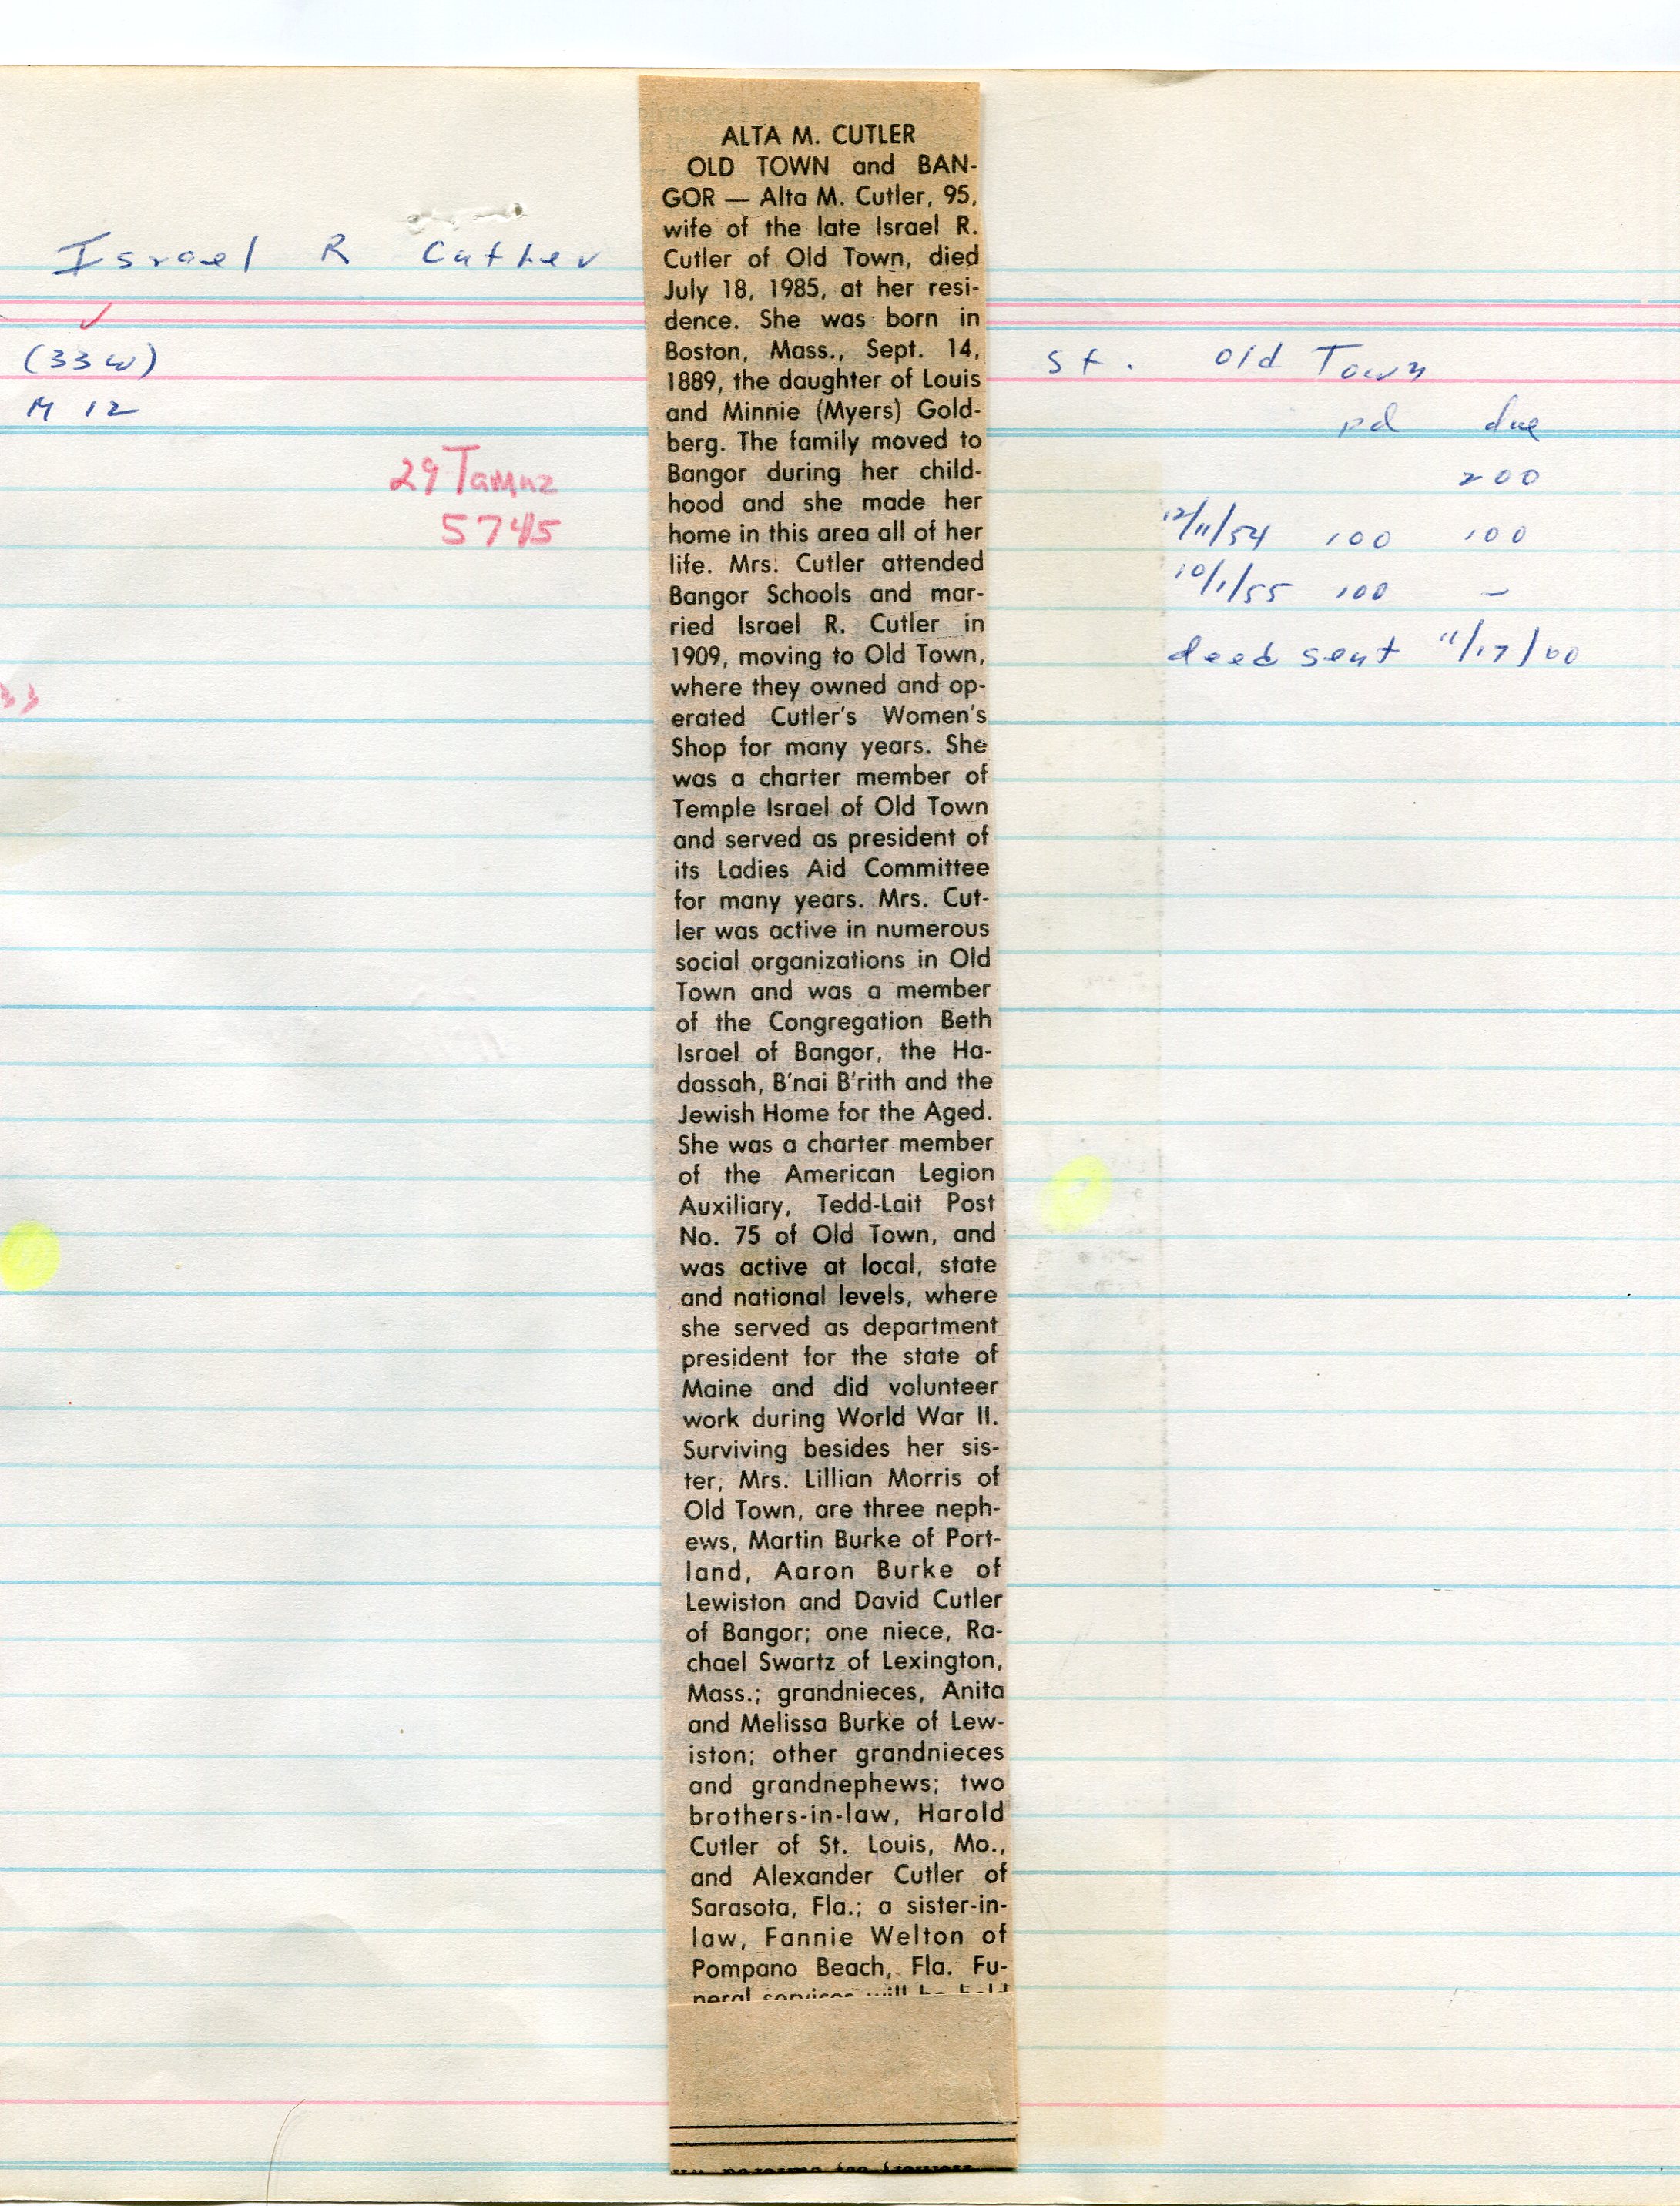 Israel R Cutler
(33 W)
M 12
29 Tamuz
5745
33
ALTA M. CUTLER
OLD TOWN and BAN-
GOR — Alta M. Cutler, 95,
wife of the late Israel R.
Cutler of Old Town, died
July 18, 1985, at her resi-
dence. She was born in
Boston, Mass., Sept. 14,
1889, the daughter of Louis
and Minnie (Myers) Gold-
berg. The family moved to
Bangor during her child-
hood and she made her
home in this area all of her
life. Mrs. Cutler attended
Bangor Schools and mar-
ried Israel R. Cutler in
1909, moving to Old Town,
where they owned and op-
erated Cutler's Women's
Shop for many years. She
was a charter member of
Temple Israel of Old Town
and served as president of
its Ladies Aid Committee
for many years. Mrs. Cut-
ler was active in numerous
social organizations in Old
Town and was a member
of the Congregation Beth
Israel of Bangor, the Ha-
dassah, B'nai B'rith and the
Jewish Home for the Aged.
She was a charter member
of the American Legion
Auxiliary, Tedd-Lait Post
No. 75 of Old Town, and
was active at local, state
and national levels, where
she served as department
president for the state of
Maine and did volunteer
work during World War II.
Surviving besides her sis-
ter, Mrs. Lillian Morris of
Old Town, are three neph-
ews, Martin Burke of Port-
land, Aaron Burke of
Lewiston and David Cutler
of Bangor; one niece, Ra-
chael Swartz of Lexington,
Mass.; grandnieces, Anita
and Melissa Burke of Lew-
iston; other grandnieces
and grandnephews; two
brothers-in-law, Harold
Cutler of St. Louis, Mo.,
and Alexander Cutler of
Sarasota, Fla.; a sister-in-
law, Fannie Welton of
Pompano Beach, Fla. Fu-
neral services will be held
St. Old Town
pd due
200
12/11/54 100 100
10/1/55 100 –
deed sent 11/17/60